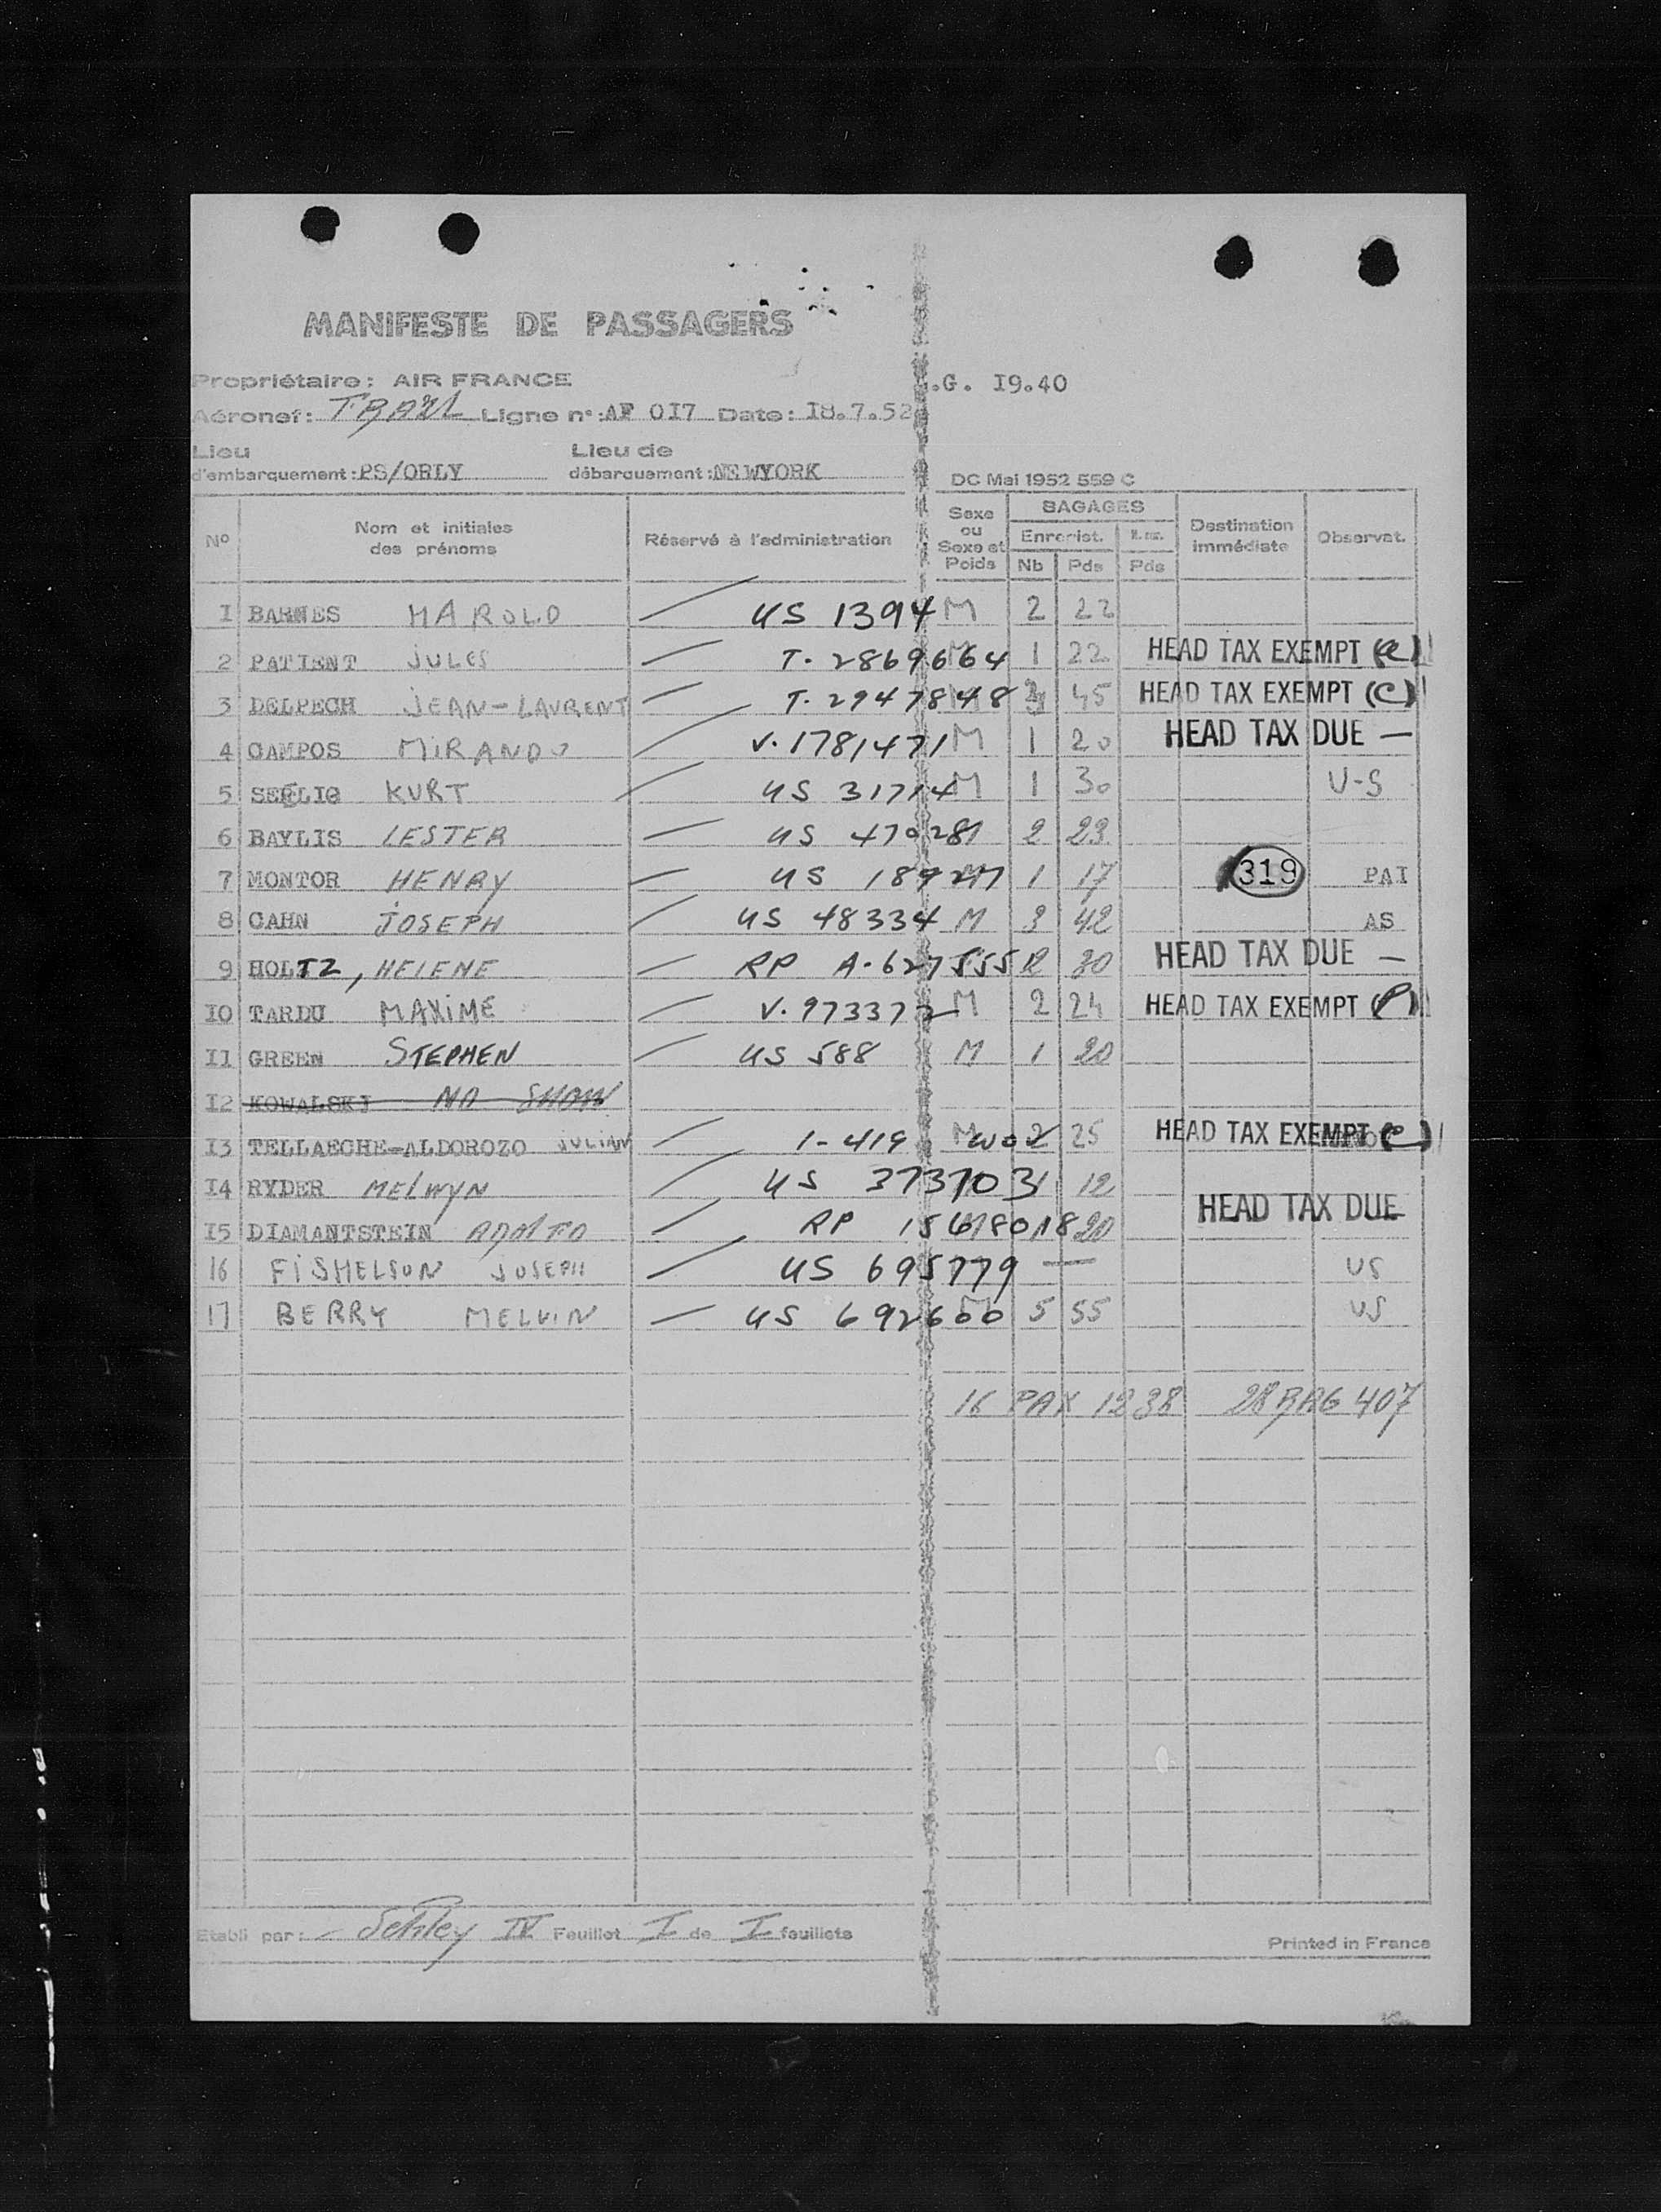 MANIFESTE DE PASSAGERS
Propriétaire: AIR FRANCE .G. I9.40
Aéronef: Ligne n°: AF 0I7 Date: I8.7.52
Lieu d'embarquement: PS/ORLY Lieu de débarquement: NEWYORK
DC Mai 1952 559 C
N° Nom et initiales des prénoms Réservé à l'administration Sexe ou Sexe et Poids BAGAGES Enregist. Nb Pds Pds Destination immédiate Observat.
I BARNES HAROLD US 1394 M 2 22
2 PATIENT JULES T. 2869664 M 1 22 HEAD TAX EXEMPT
3 DELPECH JEAN-LAURENT T. 2947848 M 45 HEAD TAX EXEMPT (C)
4 CAMPOS MIRANDO V. 1781471 M 1 20 HEAD TAX DUE —
5 SEELIG KURT US 31714 M 1 30 U-S
6 BAYLIS LESTER US 470281 2 23
7 MONTOR HENRY US 18927 M 1 17 319 PAI
8 CAHN JOSEPH US 48334 M 3 42 AS
9 HOLTZ, HELENE RP A-627555 2 30 HEAD TAX DUE —
I0 TARDU MAXIME V. 973372 M 2 24 HEAD TAX EXEMPT (P)
I1 GREEN STEPHEN US 588 M 1 20
I2 KOWALSKJ NO SHOW
I3 TELLAECHE-ALDOROZO JULIAN 1-419 M 2 25 HEAD TAX EXEMPT
I4 RYDER MELWYN US 373703 1 12
I5 DIAMANTSTEIN ADOLFO RP 20 HEAD TAX DUE
16 FISHELSON JOSEPH US 695779 — US
17 BERRY MELVIN US 692600 M 5 55 US
16 PAX 1238 28 BAG 407
Etabli par: Feuillet I de I feuillets
Printed in France